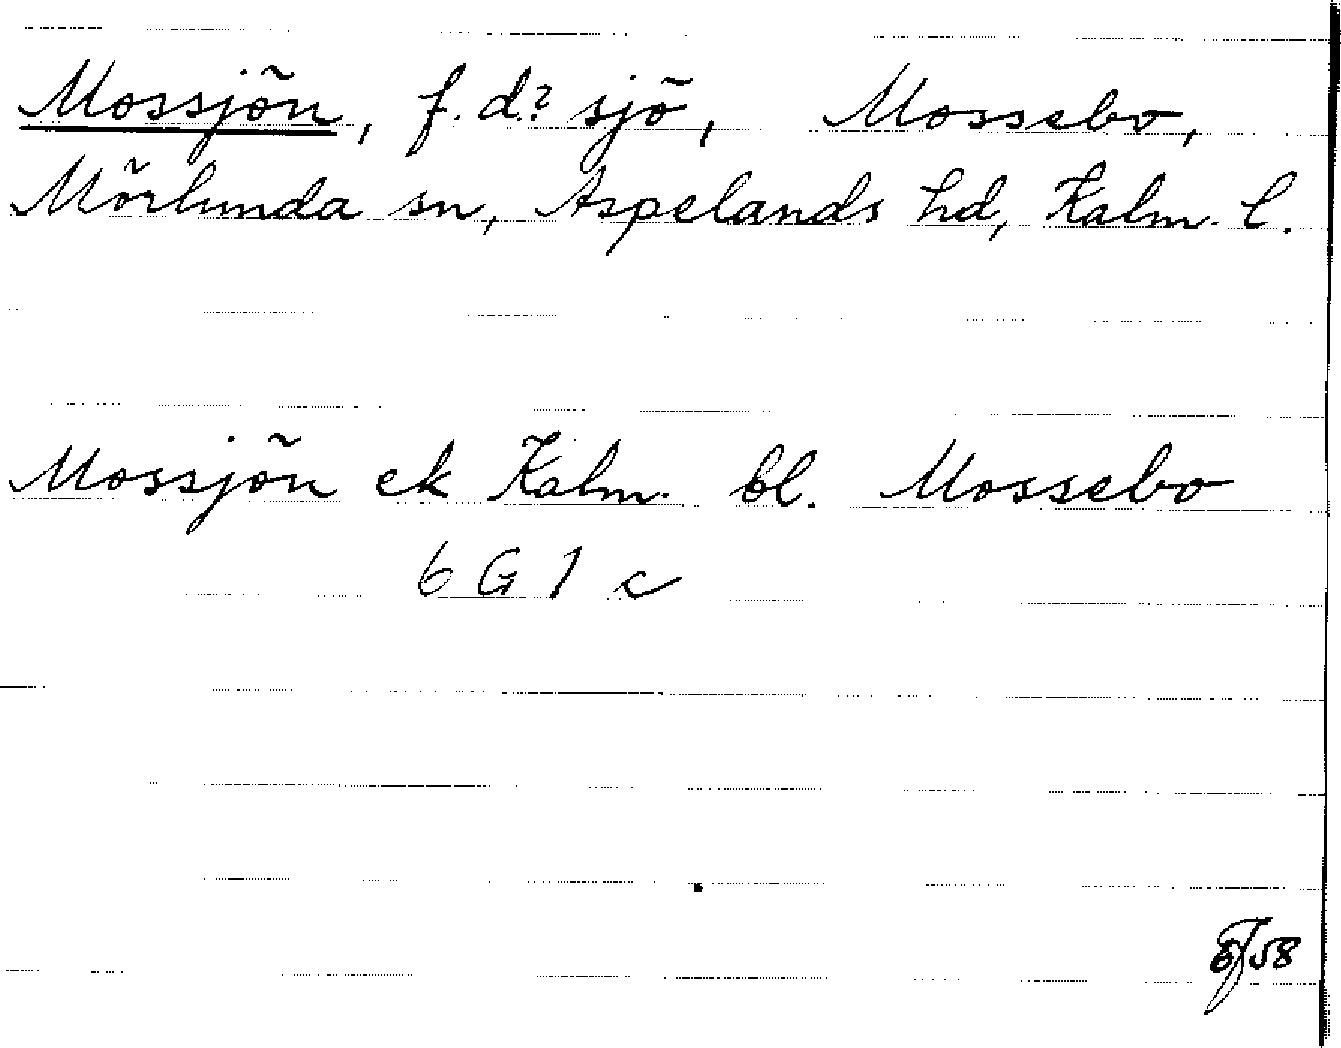 Mossjön, f. d? sjö, Mossebo,
Mörlunda sn, Aspelands hd, Kalm. l.
Mossjön ek Kalm. bl. Mossebo
6 G 1 c